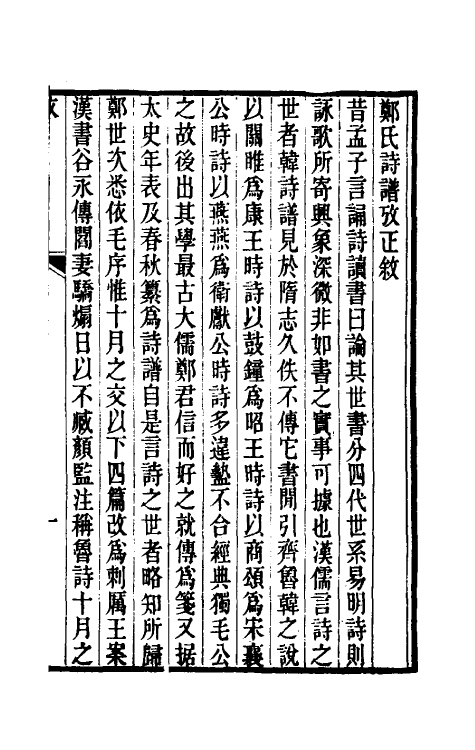 鄭氏詩譜攷正敘
昔孟子言誦詩讀書曰論其世書分四代世系易明詩則
詠歌所寄興象深微非如書之實事可據也漢儒言詩之
世者韓詩譜見於隋志久佚不傳它書閒引齊魯韓之說
以關雎爲康王時詩以鼓鐘爲昭王時詩以商頌爲宋襄
公時詩以燕燕爲衛獻公時詩多違盭不合經典獨毛公
之故後出其學最古大儒鄭君信而好之就傳爲箋又据
太史年表及春秋纂爲詩譜自是言詩之世者略知所歸
鄭世次悉依毛序惟十月之交以下四篇改爲刺厲王案
漢書谷永傳閻妻驕煽日以不臧顏監注稱魯詩十月之
一